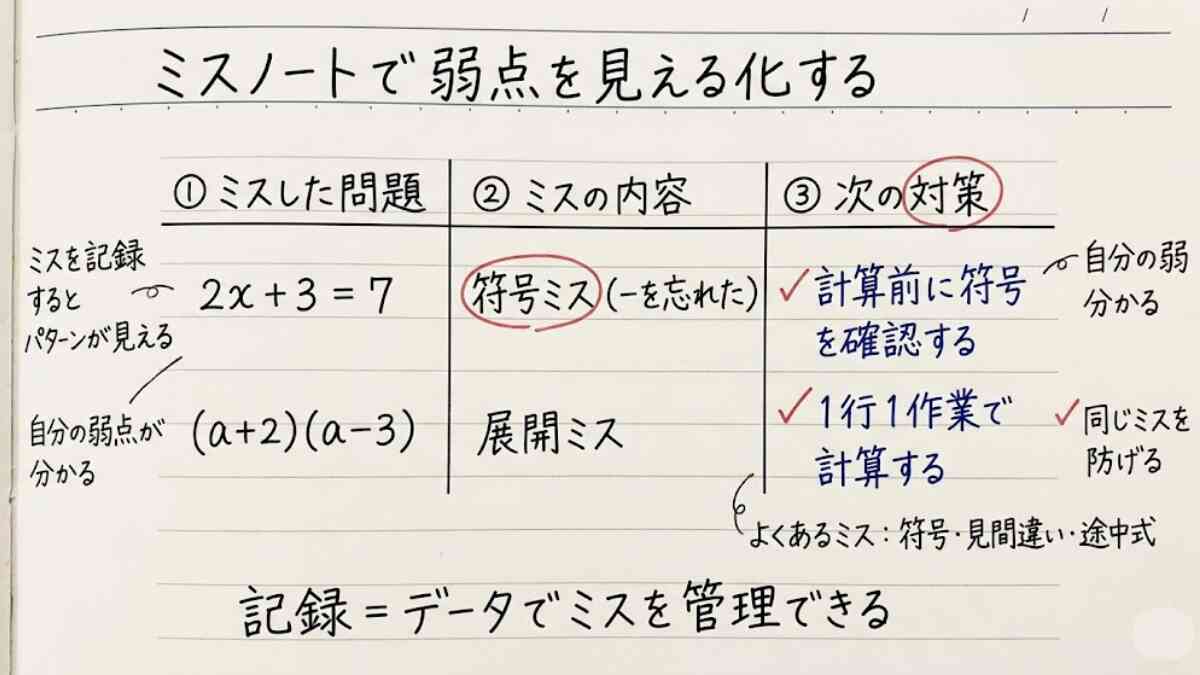 ミスノートで弱点を見える化する
① ミスした問題
② ミスの内容
③ 次の対策
ミスを記録
すると
パターンが見える
2x+3=7
符号ミス(−を忘れた)
計算前に符号
を確認する
自分の弱
分かる
自分の弱点が
分かる
(a+2)(a−3)
展開ミス
1行1作業で
計算する
同じミスを
防げる
よくあるミス：符号・見間違い・途中式
記録=データでミスを管理できる